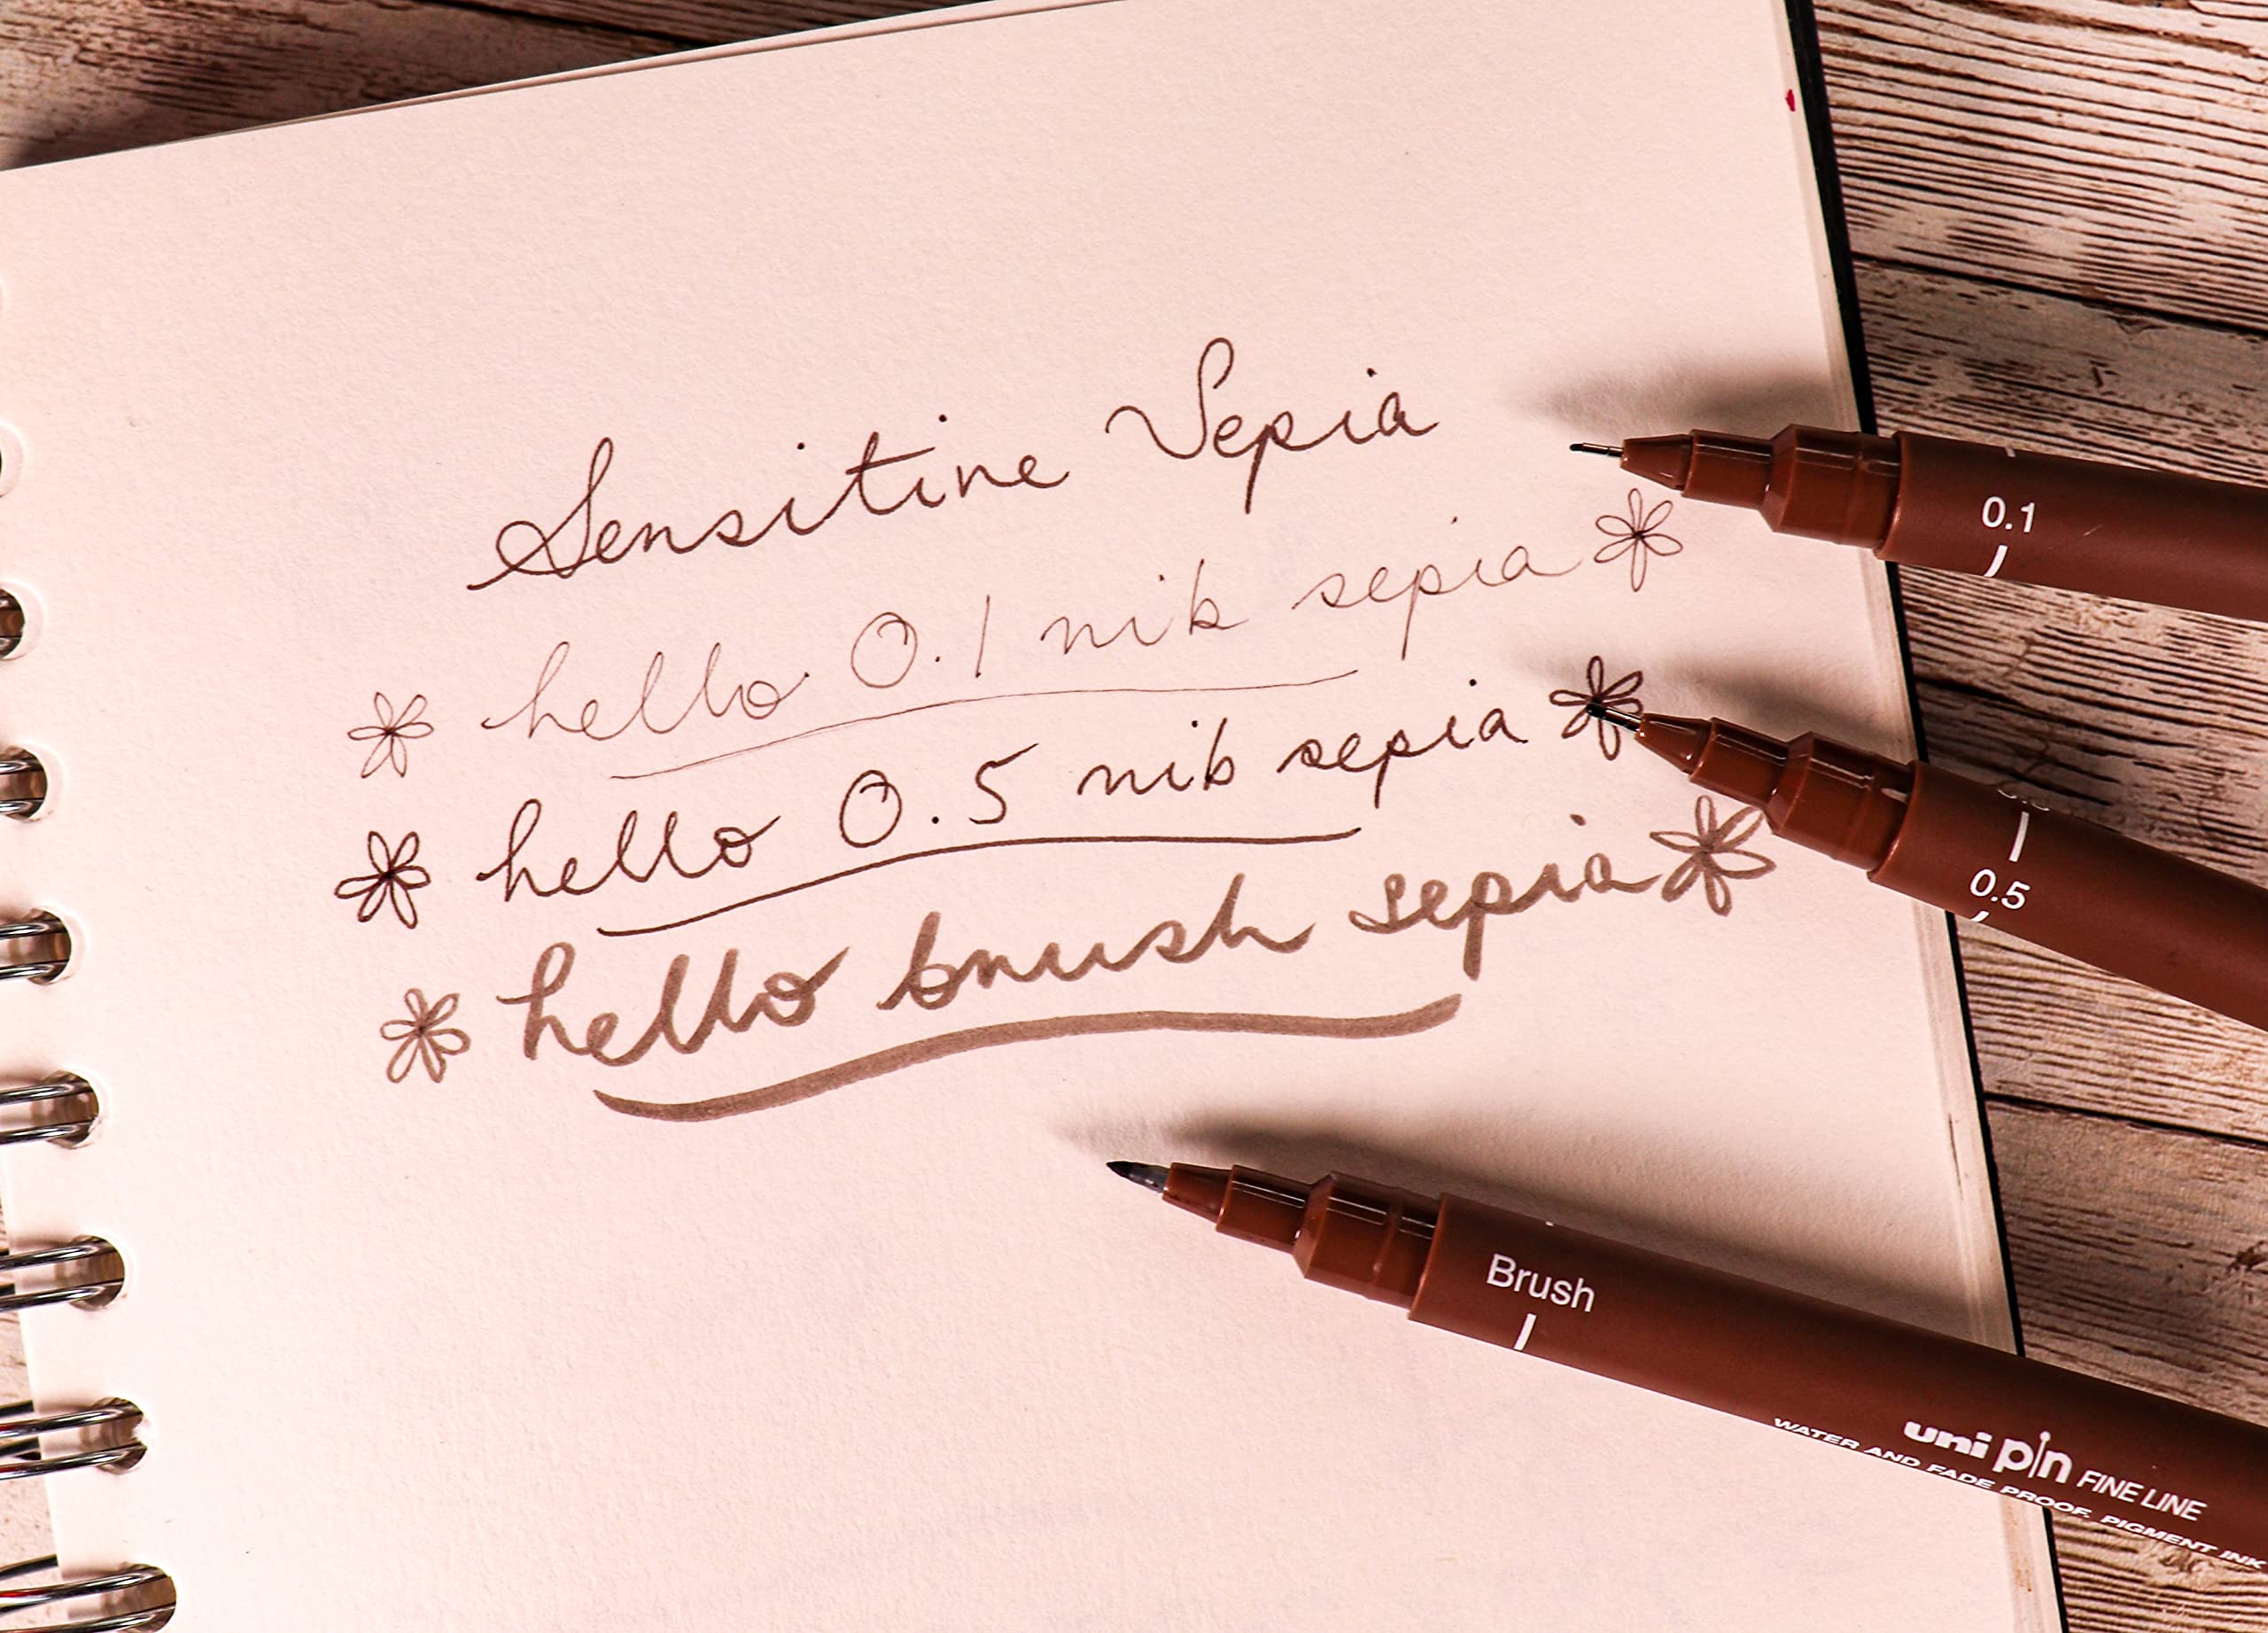 Sensitine Sepia
hello 0.1 nib sepia
hello 0.5 nib sepia
hello brush sepia
0.1
0.5
Brush
uni pin FINE LINE
WATER AND FADE PROOF, PIGMENT INK